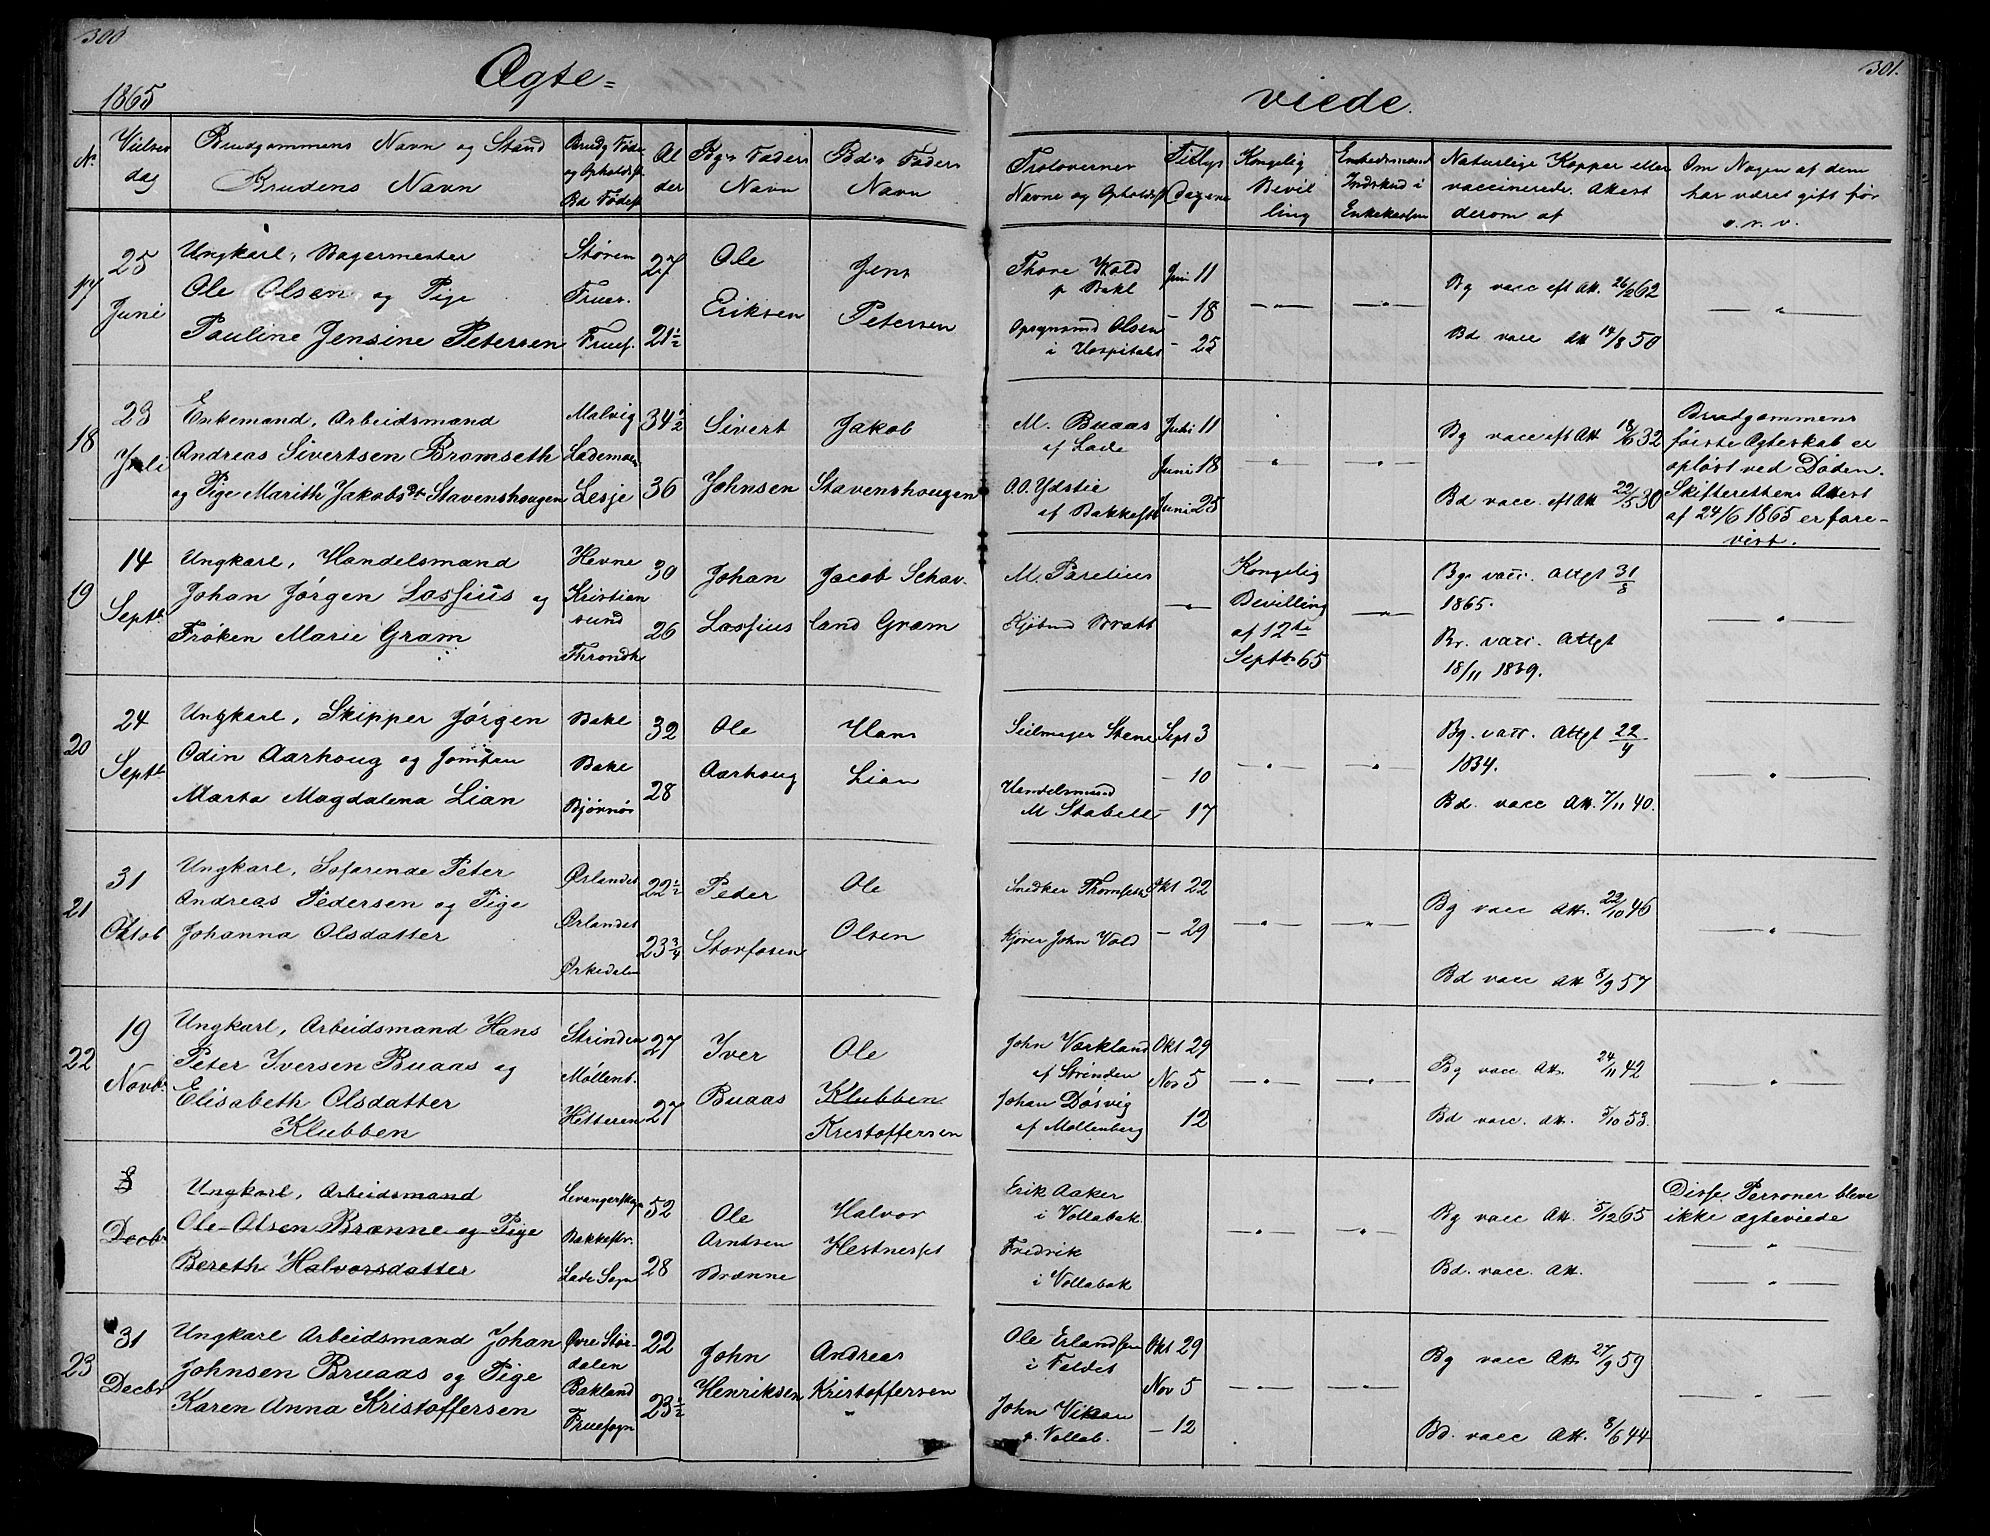 300
1865
Ægte=
viede.
301.
Nr.
Vielses
dag
Brudgommens Navn og Stand
Brudens Navn
Brudg Føde
og Opholdsst
Bd Fødest
Al
der
Bg's Faders
Navn
Bd's Faders
Navn
Forloverner
Navne og Opholdsst
Tillys
Dagene
Kongelig
Bevil
ling
Enkedsmand
Indskud i
Enkekassen
Naturlige Kopper eller
vaccinerede. Attest
derom af
Om Nogen af dem
har været gift før
o. v. v.
17
25
Juni
Ungkarl, Bagermester
Ole Olsen og Pige
Pauline Jensine Petersen
Støren
Fruer.
Fruef.
27
21½
Ole
Eriksen
Jens
Petersen
Thore Wold
p Bakl
Opsynsmd Olsen
i Hospitalet
Juni 11
– 18
– 25
Bg vacc eft Att. 26/2 62
Bd vacc Att 14/8 50
18
23
Juli
Enkemand, Arbeidsmand
Andreas Sivertsen Bromseth
og Pige Marith Jakobsdt Stavenshougen
Malvig
Lademoen
Lesje
34½
36
Sivert
Johnsen
Jakob
Stavenshougen
M. Buaas
af Lade
O.O. Ydstie
af Bakkestr
Juni 11
Juni 18
Juni 25
Bg vacc eft Att 18/6 32
Bd vacc eft Att 22/5 30
Brudgommens
første Ægteskab er
opløst ved Døden.
Skifterettens Attest
af 24/6 1865 er fore-
vist.
19
14
Septbr
Ungkarl, Handelsmand
Johan Jørgen Lossius og
Frøken Marie Gram
Hevne
Kristian
sund
Throndh
30
26
Johan
Lossius
Jacob Schav-
land Gram
M. Parelius
Kjøbmd Bratt
Kongelig
Bevilling
af 12te
Septbr 65
Bg. vacc. Attgt 31/8
1865.
Br. vacc. Attgt
18/11 1839.
20
24
Septbr
Ungkarl, Skipper Jørgen
Odin Aarhoug og Jomfru
Marta Magdalena Lian
Bakl
Bakl
Bjørnør
32
28
Ole
Aarhoug
Hans
Lian
Seilmager Stene
Handelsmand
M Stabell
Sept 3
– 10
– 17
Bg. vacc. Attgt 22/4
1834.
Bd. vacc Att. 7/11 40.
21
31
Oktob
Ungkarl, Søfarende Peter
Andreas Pedersen og Pige
Johanna Olsdatter
Ørlandet
Ørlandet
Ørkedalen
22½
23¾
Peder
Storfosen
Ole
Olsen
Snedker Thomsen
Kjører John Vold
Okt 22
– 29
Bg vacc Att. 22/10 46
Bd vacc Att 8/9 57
22
19
Novbr
Ungkarl, Arbeidsmand Hans
Peter Iversen Buaas og
Elisabeth Olsdatter
Klubben
Strinden
Møllenb.
Hitteren
27
27
Iver
Buaas
Ole
Klubben
Kristoffersen
John Værkland
af Strinden
Johan Døsvig
af Møllenberg
Okt 29
Nov 5
12
Bg vacc Att. 24/11 42
Bd vacc. Att. 5/10 53.
8
Decbr
Ungkarl, Arbeidsmand
Ole Olsen Brænne og Pige
Bereth Halvorsdatter
Levangerskogn
Bakkestr.
Lade Sogn
52
28
Ole
Arntsen
Brænne
Halvor
Hestnesset
Erik Aaker
i Vollabak.
Fredrik
i Vollabak
Bg vacc Att. 5/12 65
Bd. vacc. Att.
Disse Personer bleve
ikke ægteviede
23
31
Decbr
Ungkarl Arbeidsmand Johan
Johnsen Bruaas og Pige
Karen Anna Kristoffersen
Øvre Stør-
dalen
Bakland
Fruesogn
22
23½
John
Henriksen
Andreas
Kristoffersen
Ole Erlandsen
i Faldet
John Vikan
p. Vollab.
Okt 29
Nov 5
– 12
Bg vacc Att. 27/9 59
Bd. vacc Att. 8/6 44